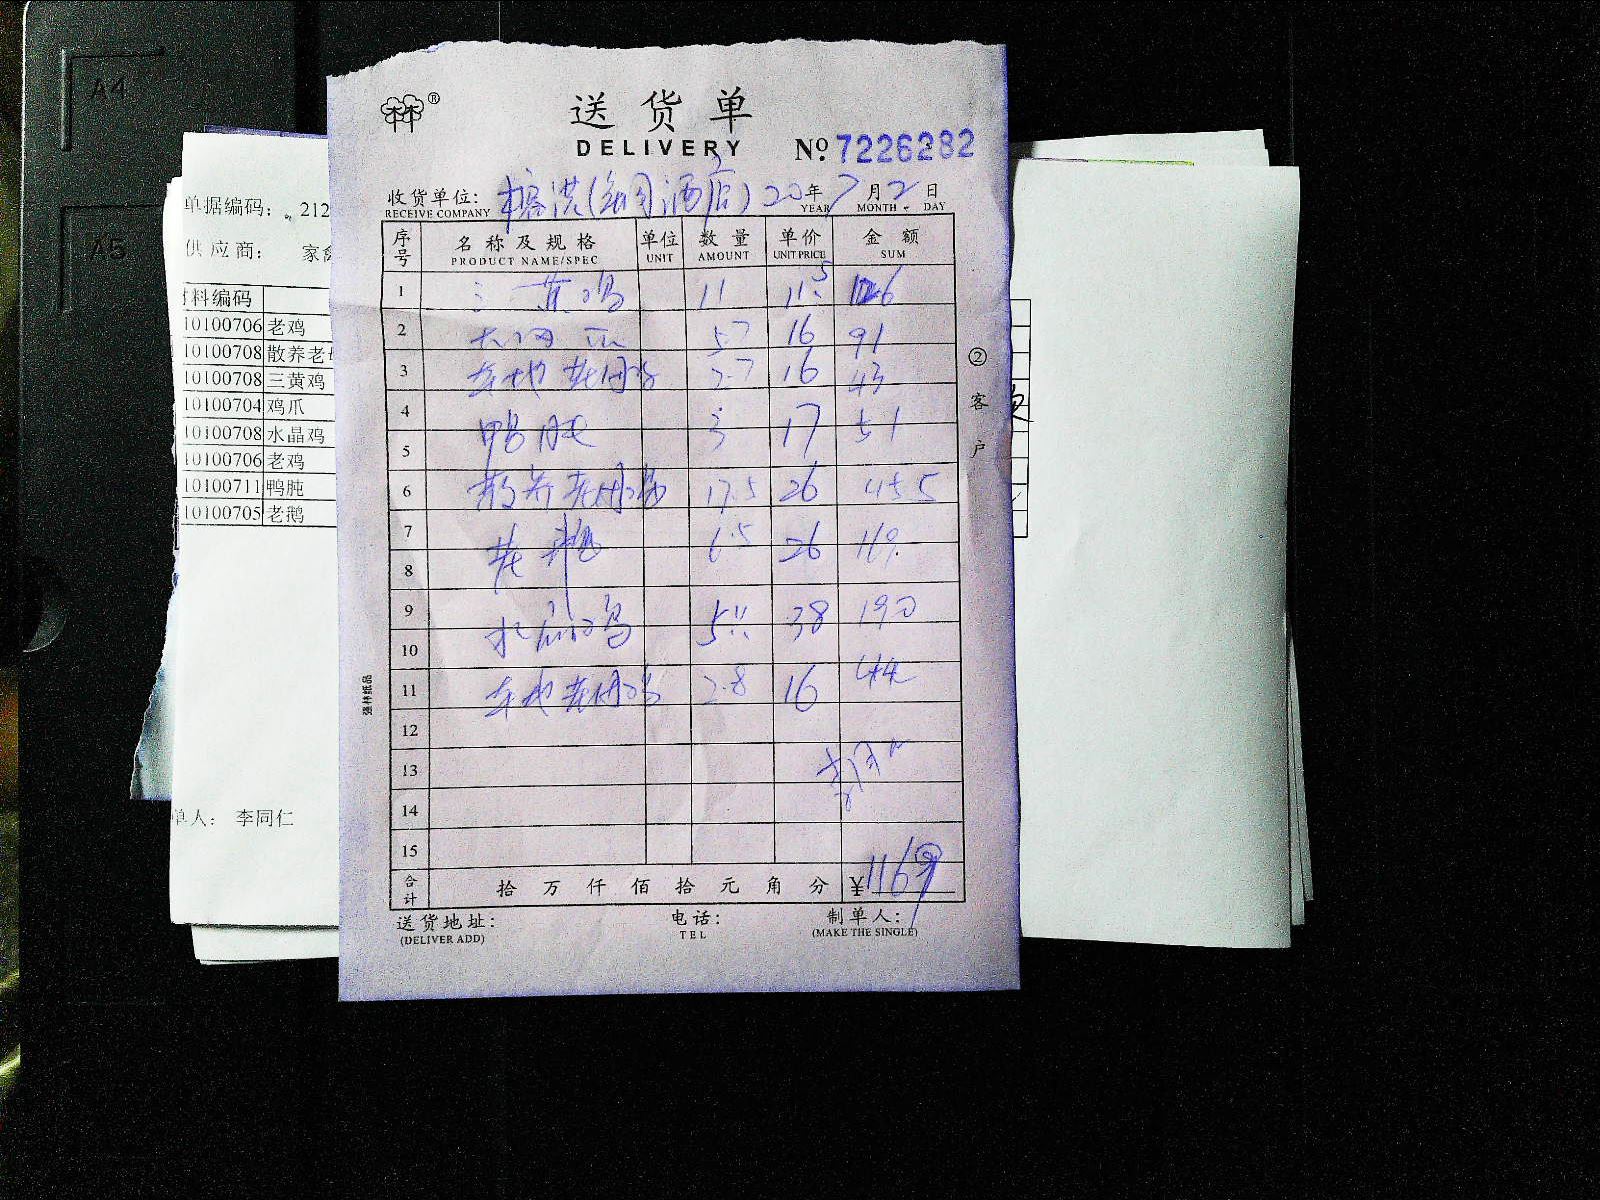 A4
A5
单据编码： 212
供应商： 家禽
材料编码
10100706 老鸡
10100708 散养老母
10100708 三黄鸡
10100704 鸡爪
10100708 水晶鸡
10100706 老鸡
10100711 鸭肫
10100705 老鹅
单人： 李同仁
®
送货单
DELIVERY
№ 7226282
收货单位： (湖酒店) 20年7月2日
RECEIVE COMPANY YEAR MONTH DAY
序号 名称及规格 单位 数量 单价 金额
PRODUCT NAME/SPEC UNIT AMOUNT UNIT PRICE SUM
1 三黄鸡 11 11.5 126
2 大鸡爪 5.7 16 91
3 本地老母鸡 2.7 16 43
4 鸭肫 3 17 51
5
6 散养老母鸡 17.5 26 455
7 老鹅 6.5 26 169
8
9 水晶鸡 5 38 190
10
11 本地老母鸡 2.8 16 44
12
13
14
15
合计 拾万仟佰拾元角分 ¥1169
送货地址： 电话： 制单人：
(DELIVER ADD) TEL (MAKE THE SINGLE)
②客户
强林纸品